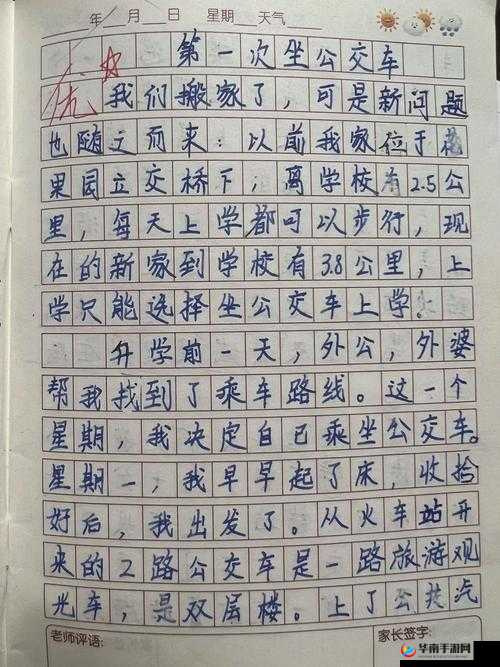 年 月 日 星期 天气
第一次坐公交车
优
我们搬家了，可是新问题
也随之而来：以前我家位于花
果园立交桥下，离学校有2.5公
里，每天上学都可以步行，现
在的新家到学校有3.8公里，上
学只能选择坐公交车上学。
升学前一天，外公，外婆
帮我找到了乘车路线。这一个
星期，我决定自己乘坐公交车。
星期一，我早早起了床，收拾
好后，我出发了。从火车站开
来的2路公交车是一路旅游观
光车，是双层楼。上了公共汽
老师评语： 家长签字：
华南手游网